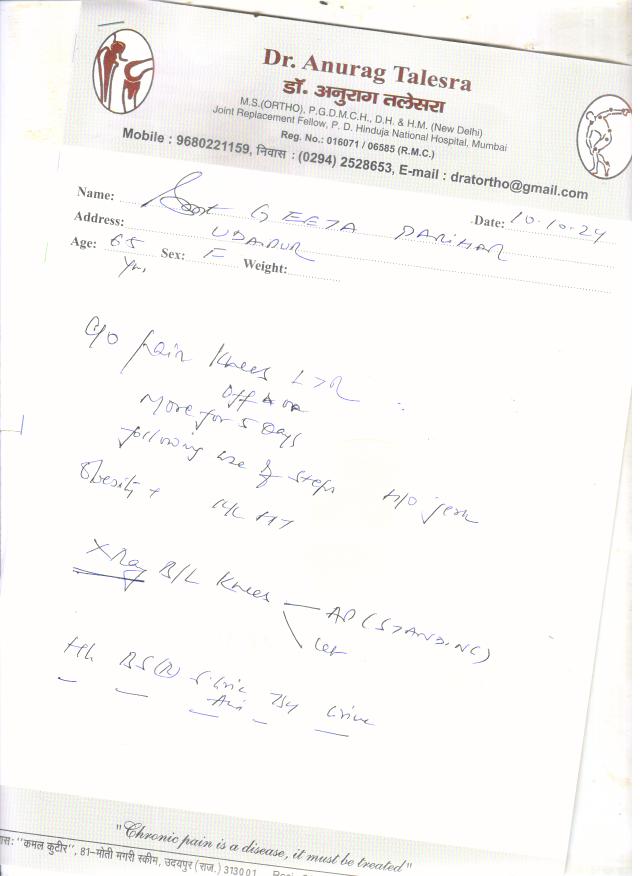 Dr. Anurag Talesra
डॉ. अनुराग तलेसरा
M.S.(ORTHO), P.G.D.M.C.H., D.H. & H.M. (New Delhi)
Joint Replacement Fellow, P. D. Hinduja National Hospital, Mumbai
Reg. No.: 016071 / 06585 (R.M.C.)
Mobile : 9680221159, निवास : (0294) 2528653, E-mail : dratortho@gmail.com
Name: GEETA PARIHAR Date: 10.10.24
Address: UDAIPUR
Age: 65 Yrs, Sex: F Weight:
C/O pain Knees L>R
Off & on
More for 5 Days
following use of steps H/O jerk
Obesity + HT
X Ray B/L Knees AP (STANDING)
Lat
Hb BS (R) S. Uric Acid TSH Urine
"Chronic pain is a disease, it must be treated"
"कमल कुटीर", 81-मोती मगरी स्कीम, उदयपुर (राज.) 313001